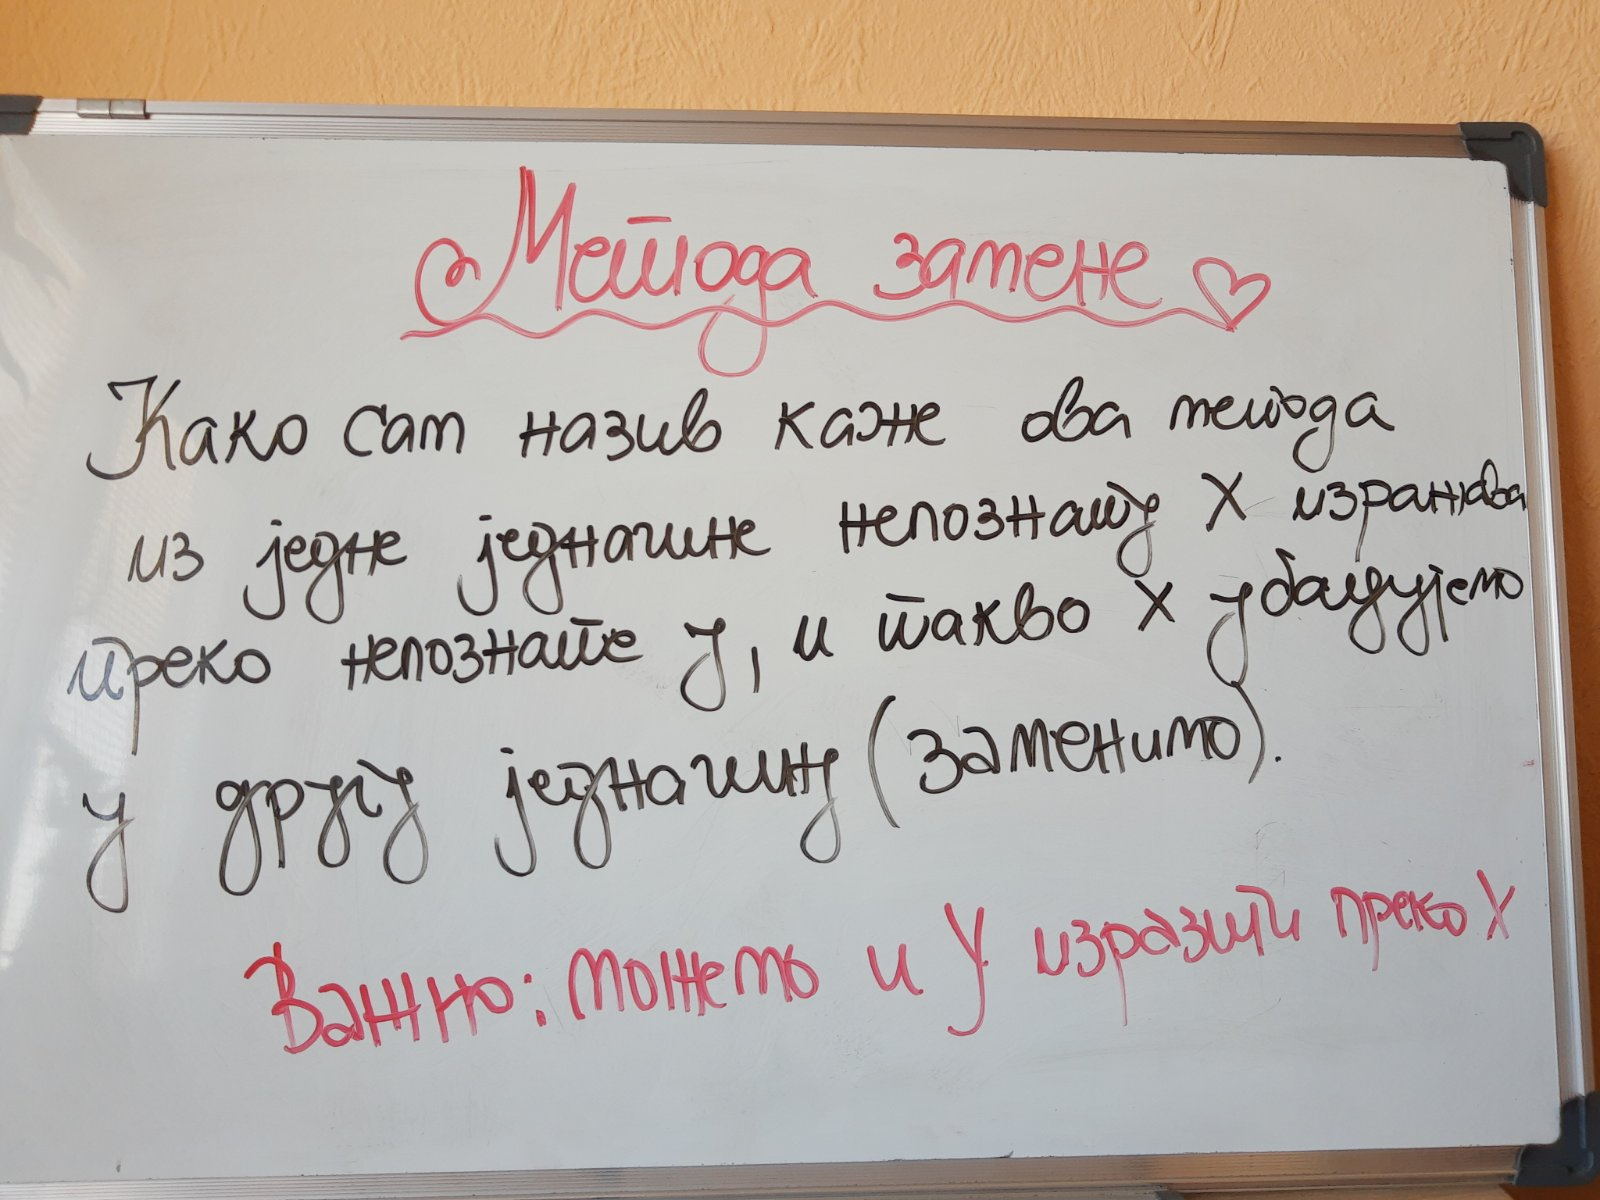 Метода замене
Како сам назив каже ова метода
из једне једначине непознату X изражава
преко непознате y, и такво X убацујемо
у другу једначину (заменимо).
Важно: можемо и y изразити преко X